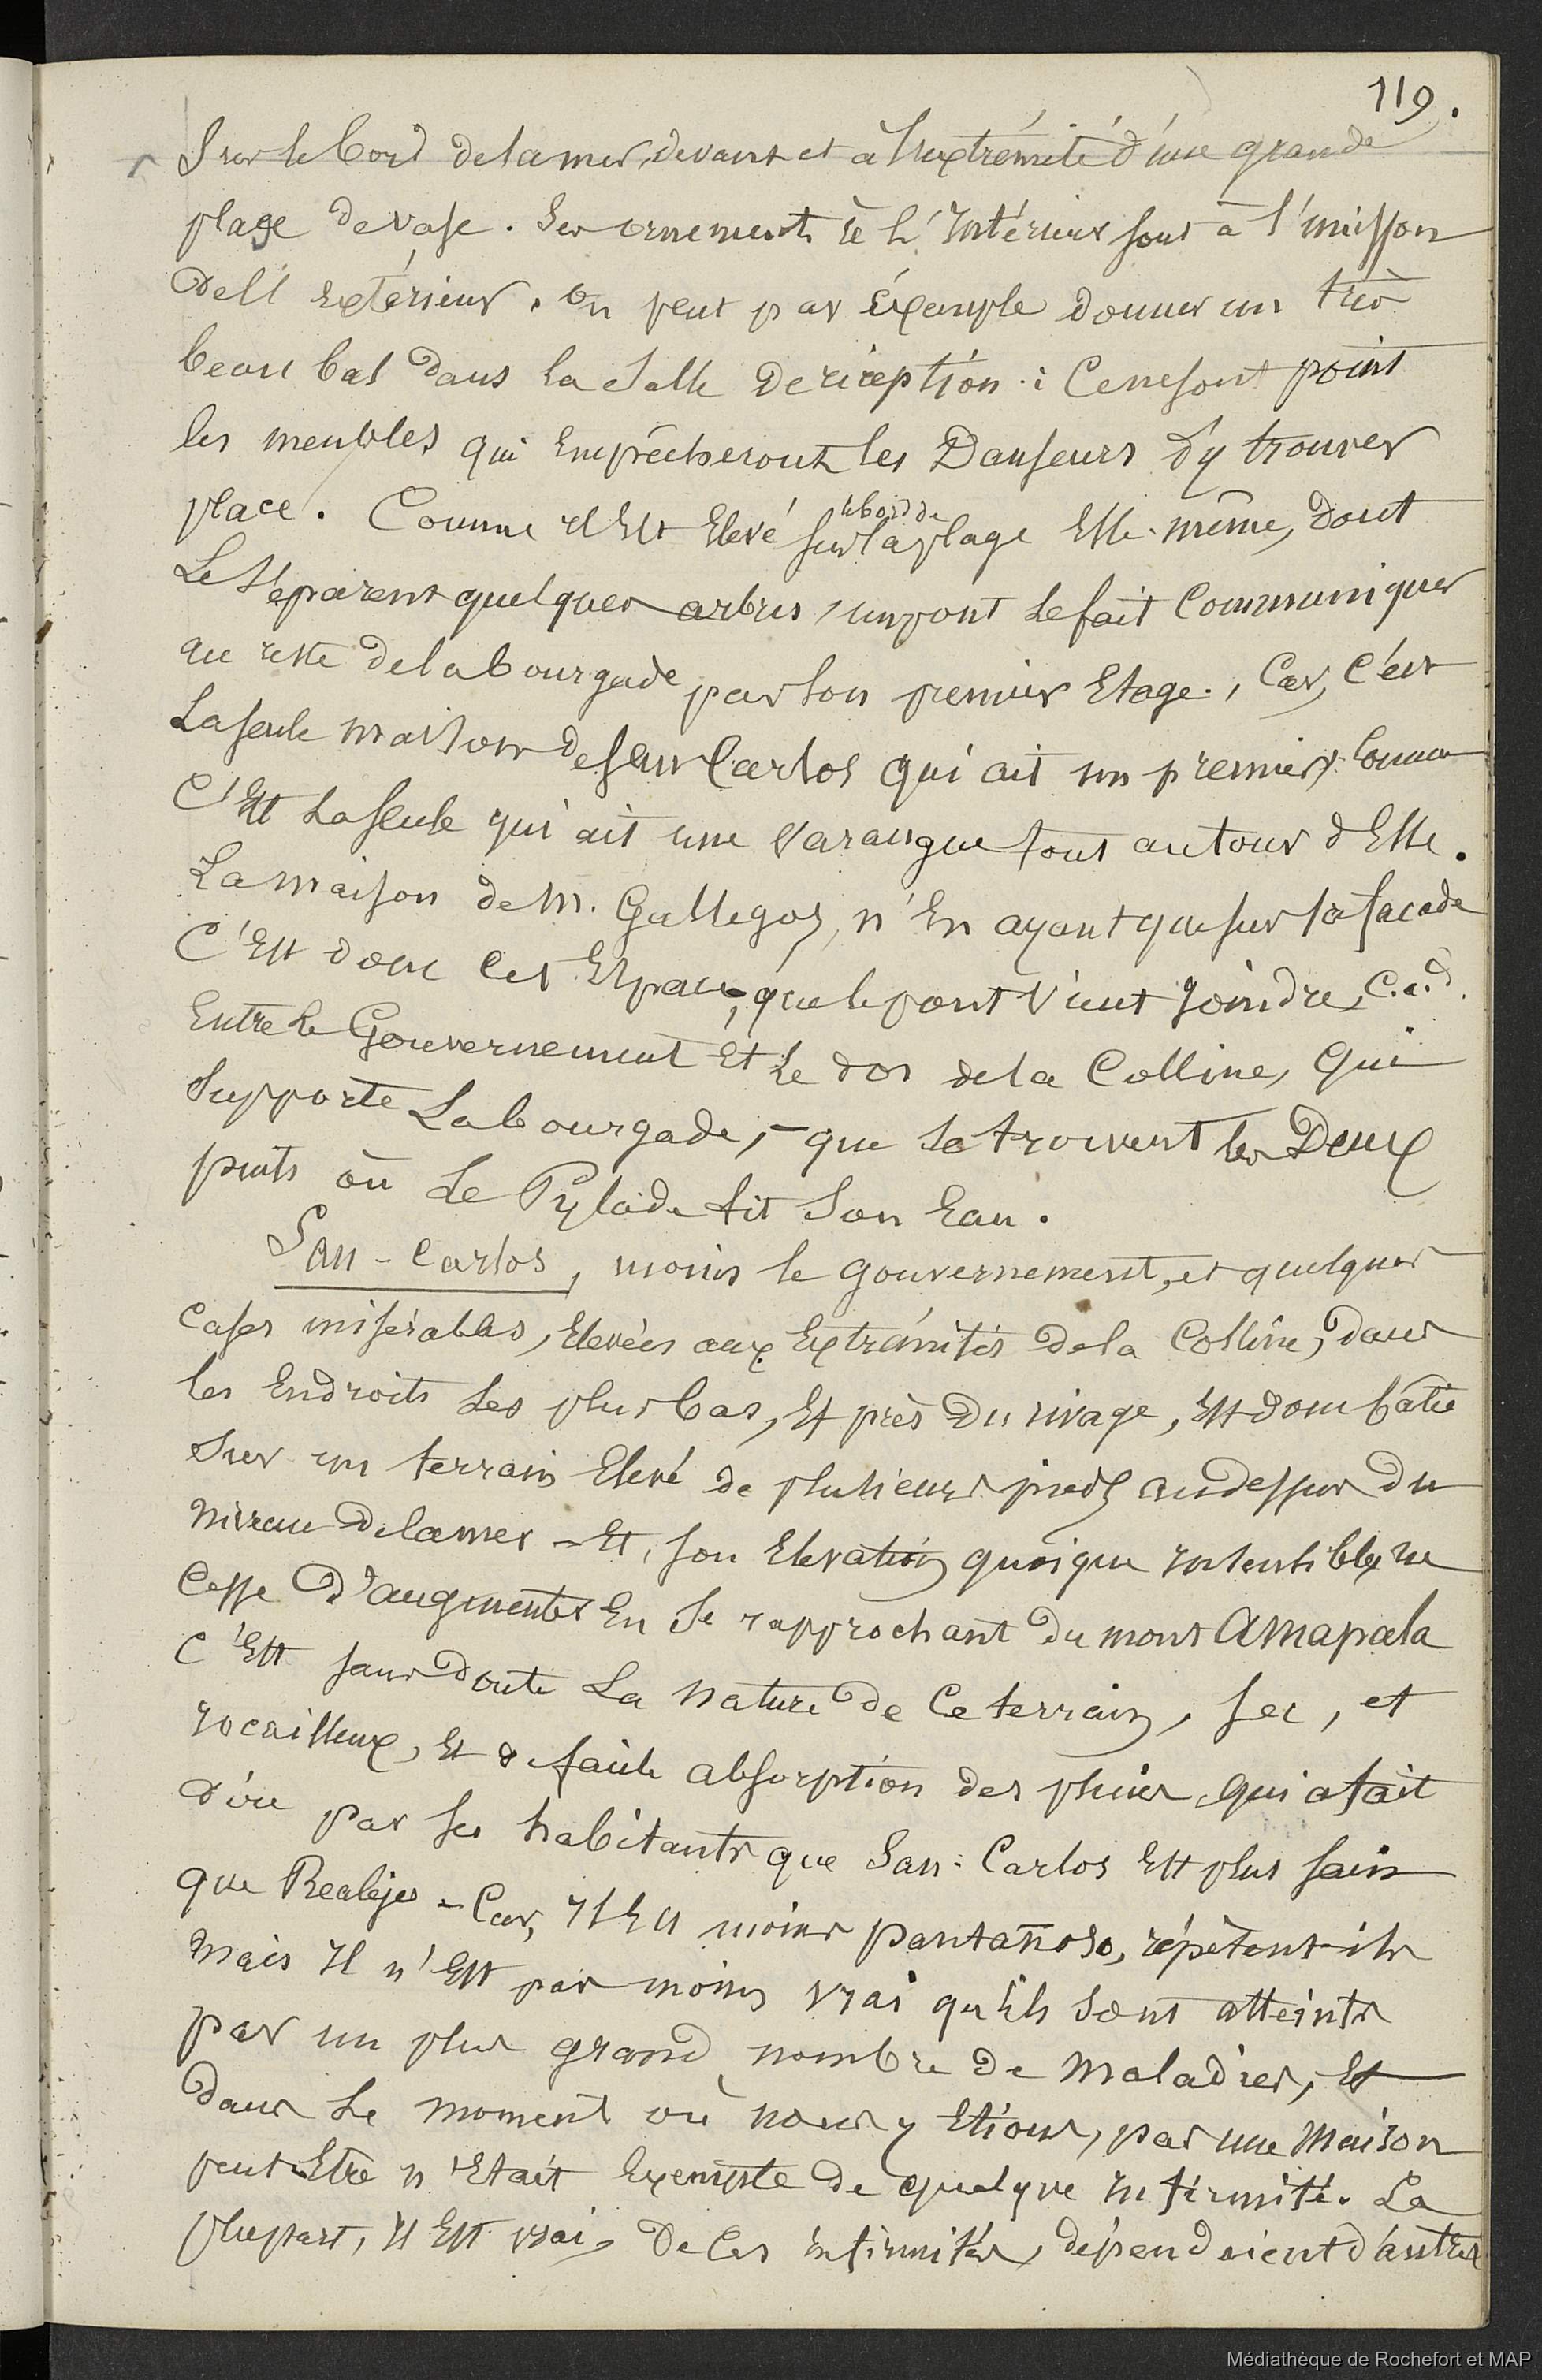 119.
Sur le bord de la mer, devant et à l'extrémité d'une grande
plage de vase. Ses ornements à l'Intérieur sont à l'unisson
de l'Extérieur. On peut par Exemple donner un très
beau bal dans la Salle de réception : Ce ne sont point
les meubles qui Empêcheront les Danseurs d'y trouver
place. Comme il Est Elevé sur le bord de la plage Elle-même, dont
Le Séparent quelques arbres, un pont Le fait Communiquer
au reste de la bourgade par son premier Etage., Car, c'est
La seule maison de San Carlos qui ait un premier, comme
C'Est La seule qui ait une varangue tout autour d'Elle.
La maison de M. Gallegos, n'En ayant que sur sa façade
C'Est donc Cet Espace, que le pont vient joindre, c.a.d.
Entre Le Gouvernement Et Le dos de la Colline, qui
Supporte La bourgade, - que se trouvent les Deux
puits où Le Pylade fit Son Eau.
San-Carlos, moins le gouvernement, et quelques
cases misérables, Elevées aux Extrémités de la Colline, dans
les Endroits Les plus bas, Et près du rivage, Est donc bâtie
Sur un terrain Elevé de plusieurs pieds au dessus du
niveau de la mer - Et, son Elevation quoique insensible, ne
Cesse d'augmenter En Se rapprochant du mont Amapala
C'Est sans doute La nature de Ce terrain, sec, et
rocailleux, Et de facile absorption des pluies, qui a fait
dire par ses habitants que San-Carlos Est plus sain
que Realejo - Car, Il Est moins pantañoso, répètent-ils
Mais Il n'Est pas moins vrai qu'Ils sont atteints
par un plus grand nombre de Maladies, Et
dans Le moment où nous y Etions, pas une Maison
peut Etre n'Etait Exempte de quelque Infirmité. La
plupart, Il Est vrai, De Ces infirmités, dépendaient d'autres
Médiathèque de Rochefort et MAP